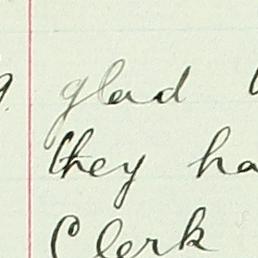 glad
they ha
Clerk